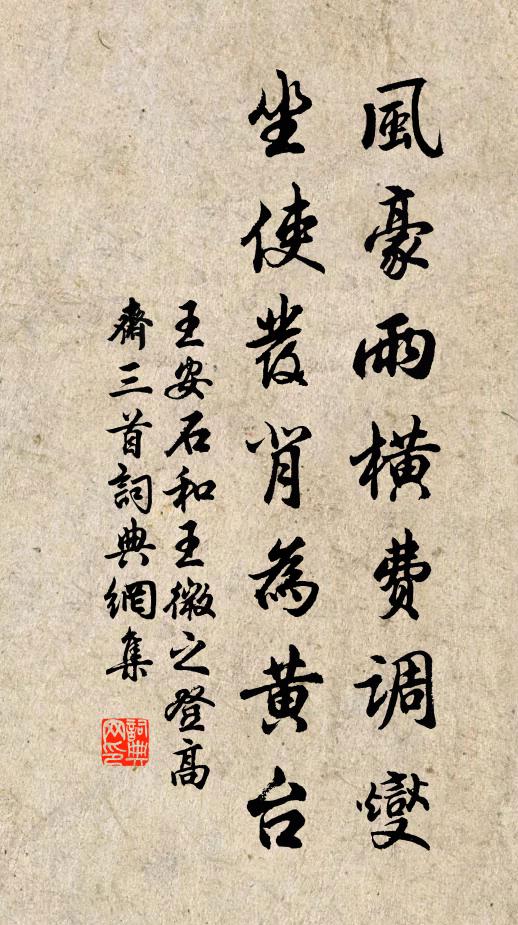 風豪雨橫費調燮
坐使發背為黃台
王安石和王微之登高
齋三首詞典網集
詞典
网印